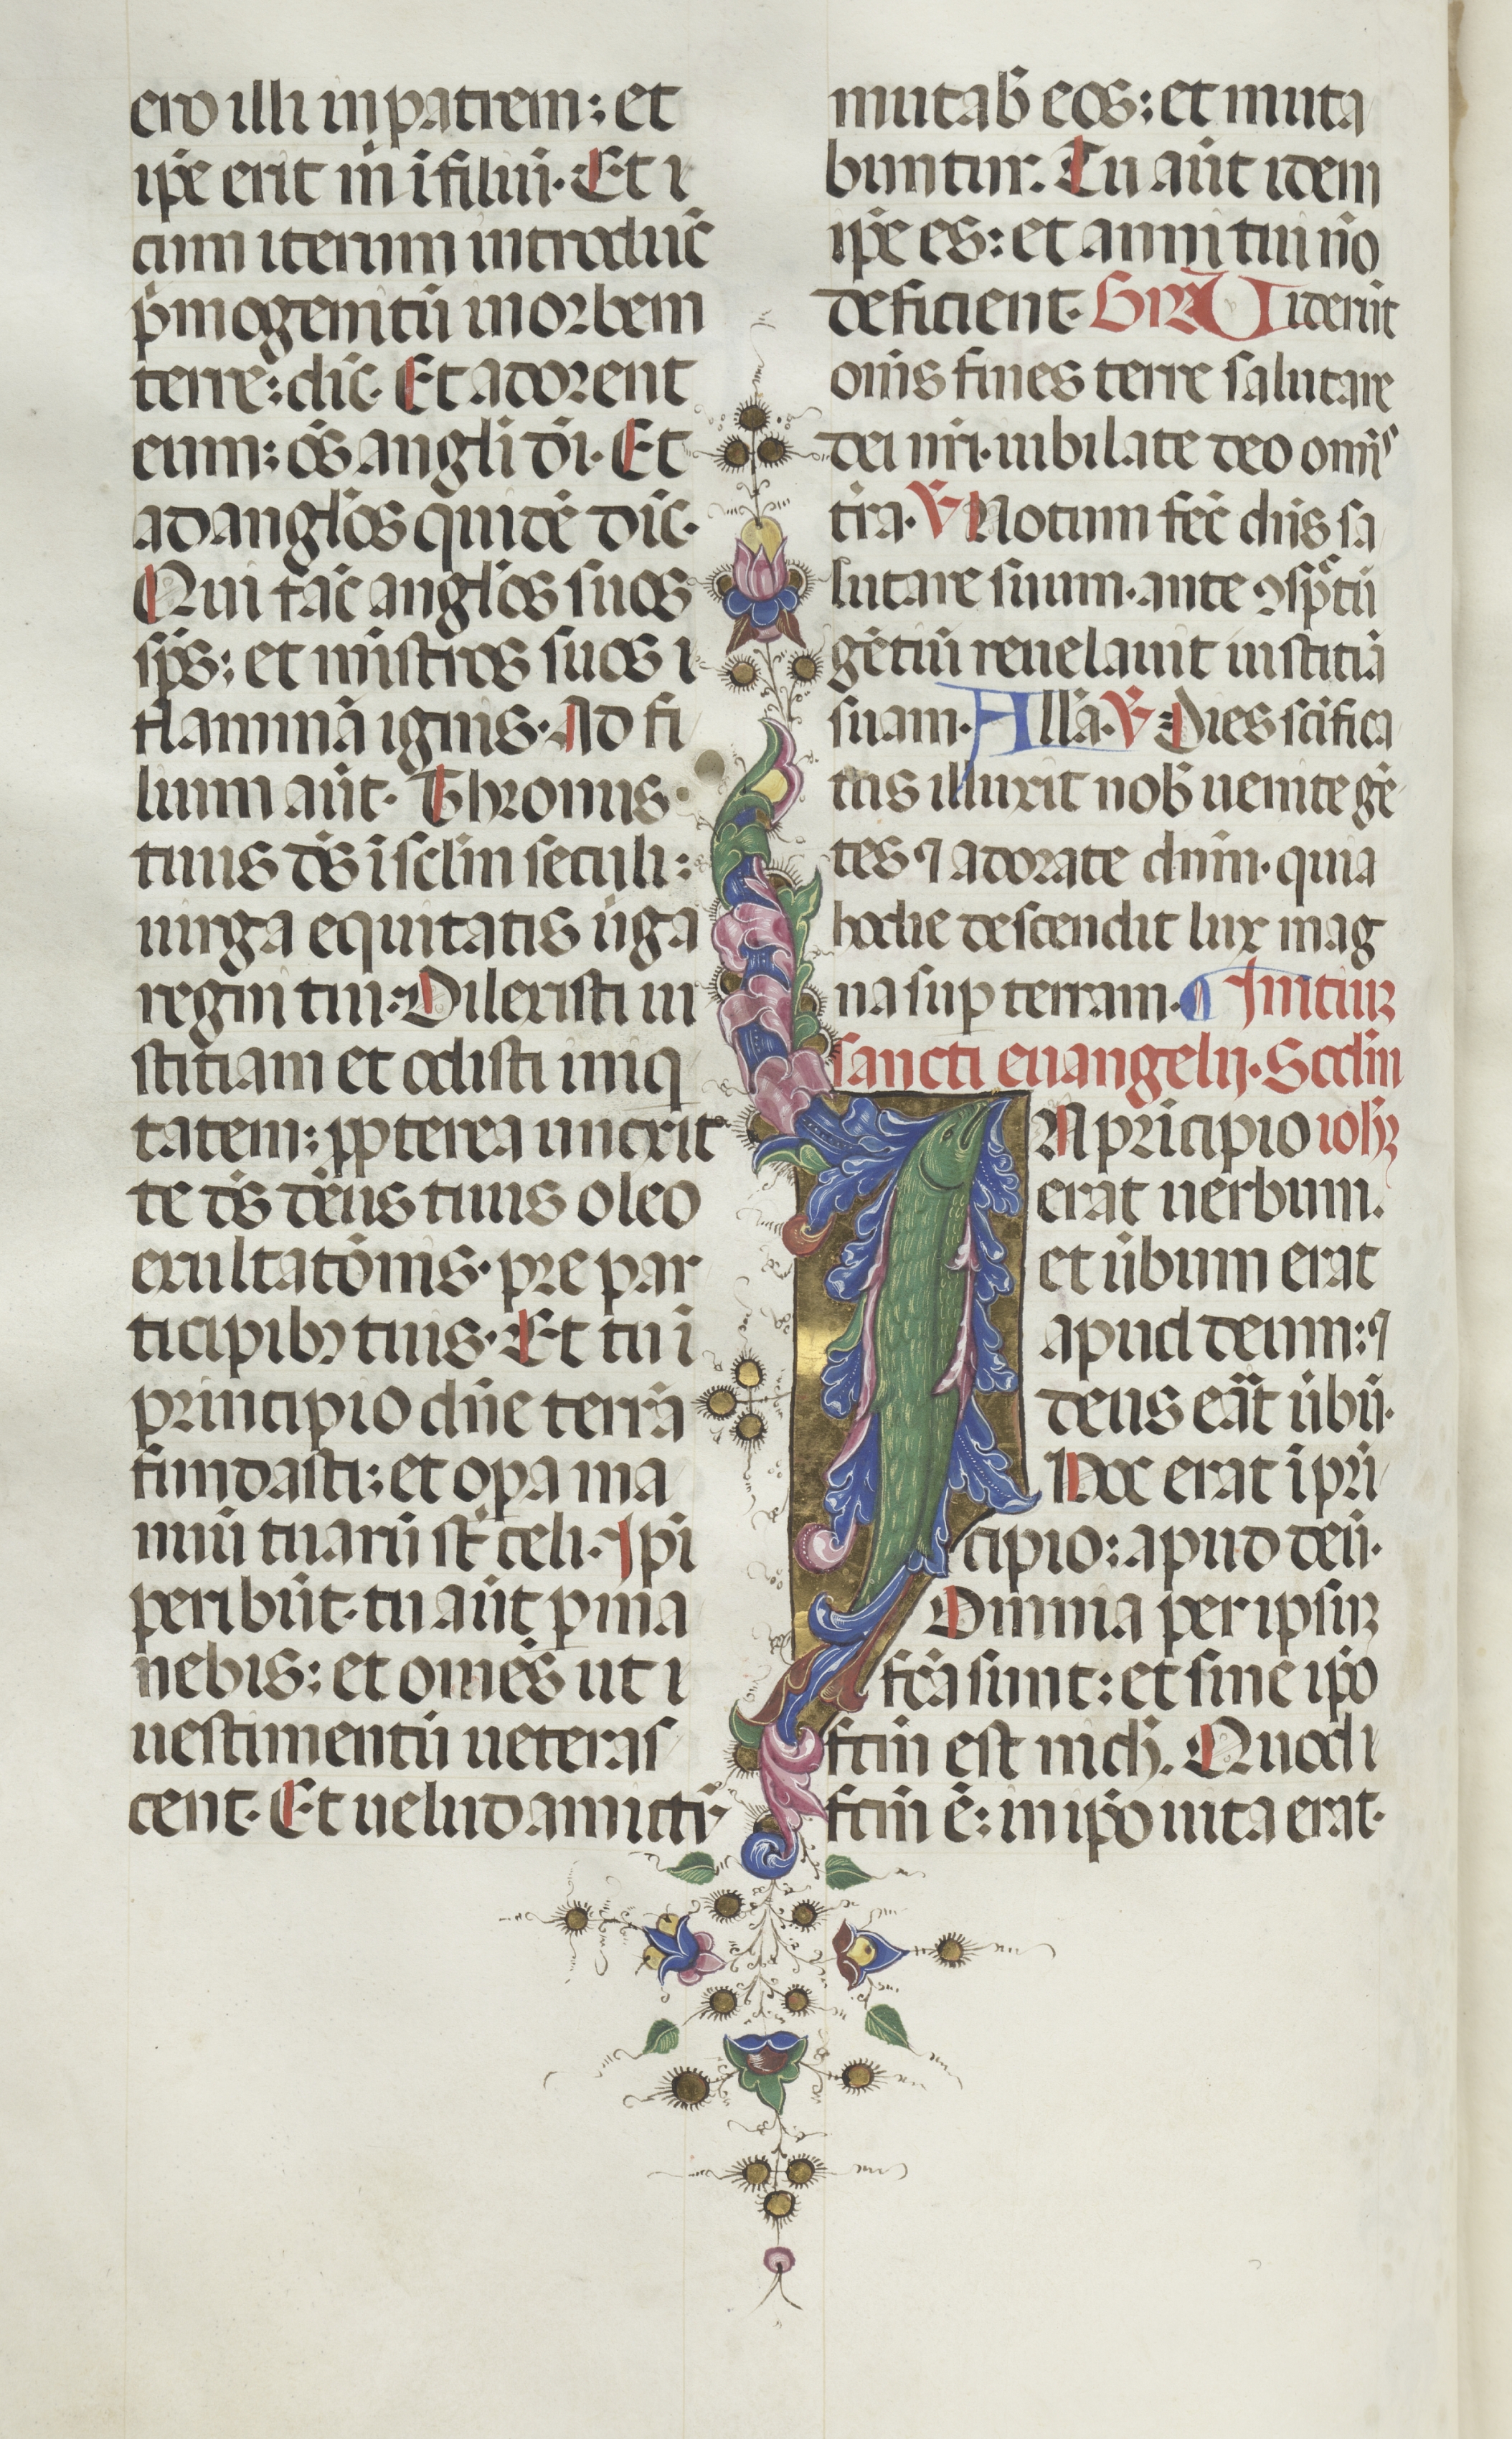 ero illi in patrem: et
ip̄e erit m̄ i filiū. Et i
cum iterum introduc̄
p̄mogenitū in orbem
terre: dic̄. Et adorent
eum: ōs angli dī. Et
ad angl̄os quidē dic̄.
Qui fac̄ angl̄os suos
sp̄s: et mīstros suos i
flammā ignis. Ad fi
lium aūt. Thronus
tuus ds̄ i sclm̄ seculi:
uirga equitatis ūga
regni tui. Dilexisti iu
stitiam et odisti iniq
tatem: ꝓpterea unxit
te ds̄ dēus tuus oleo
exultatōnis. pre par
ticipibꝫ tuis. Et tu i
principio dn̄e terrā
fundasti: et opa ma
nuū tuarū st̄ celi. Ipi
peribūt. tu aūt pma
nebis: et omēs ut i
uestimentū ueteras
cent. Et uelud amictū
mutab̄ eos: et muta
buntur. Tu aūt idem
ip̄e es: et anni tui nō
deficient. Gr̄a Uiderūt
om̄s fines terre salutare
dei nr̄i. iubilate deo omīs
tr̄a. ℣ Notum fec̄ dn̄s sa
lutare suum. ante ꝯspc̄tū
gētiū reuelauit iustitiā
suam. All̄a. ℣ Dies sc̄ifica
tus illuxit nob̄ uenite gē
tes ⁊ adorate dnm̄. quia
hodie descendit lux mag
na sup terram. Initiuꝫ
sancti euangelij. Scdm̄
IN pricipio ioh̄ꝫ
erat uerbum.
et ūbum erat
apud deum: ⁊
deus eāt ūbū.
Hoc erat i pri
cipio: apud deū.
Omnia per ipsuꝫ
fcā sunt: et sine ip̄o
fctm̄ est nich̄. Quod i
fctm̄ ē: in ip̄o uita erat.